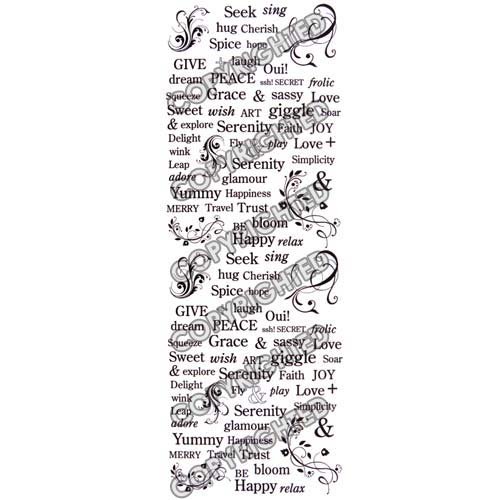 Seek sing
hug Cherish
Spice hope
GIVE laugh Oui!
dream PEACE ssh! SECRET frolic
Squeeze Grace & sassy Love
Sweet wish ART giggle Soar
& explore Serenity Faith JOY
Delight Fly & play Love +
wink
Leap Serenity Simplicity
adore glamour &
Yummy Happiness
MERRY Travel Trust
BE bloom
Happy relax
Seek sing
hug Cherish
Spice hope
GIVE laugh Oui!
dream PEACE ssh! SECRET frolic
Squeeze Grace & sassy Love
Sweet wish ART giggle Soar
& explore Serenity Faith JOY
Delight Fly & play Love +
wink
Leap Serenity Simplicity
adore glamour &
Yummy Happiness
MERRY Travel Trust
BE bloom
Happy relax
COPYRIGHTED
COPYRIGHTED
COPYRIGHTED
COPYRIGHTED
COPYRIGHTED
COPYRIGHTED
COPYRIGHTED
COPYRIGHTED